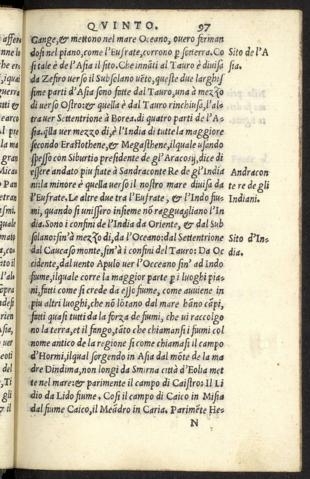 QVINTO. 97
Gange, & mettono nel mare Oceano, ouero ferman
dosi nel piano, come l'Eufrate, corrono p̱ sotterra. Co
si tale è de l'Asia il sito. Che innãti al Tauro è diuisa
da Zefiro uerso il Subsolano uẽto, queste due larghis
sime parti d'Asia sono fatte dal Tauro, una à mezzo
dì uerso Ostro: & quella è dal Tauro rinchiusa, l'al
tra uer Settentrione à Borea. di quatro parti de l'A=
sia. q̃lla uer mezzo dì, è l'India di tutte la maggiore
secondo Erastothene, & Megasthene, ilquale usando
spesso con Siburtio presidente de gl'Aracosij, dice di
essere andato piu fiate à Sandraconte Re de gl'India
ni: la minore è quella uerso il nostro mare diuisa da
l'Eufrate. Le altre due tra l'Eufrate, & l'Indo fiu=
mi, quando si unissero insieme nõ ragguagliano l'In
dia. Sono i confini de l'India da Oriente, & dal Sub
solano: sin'à mezzo dì, da l'Oceano: dal Settentrione
dal Caucaso monte, sin'à i confini del Tauro: Da Oc
cidente, dal uento Apulo uer l'Oceano sin' ad Indo
fiume, ilquale corre la maggior parte p̱ luoghi pia=
ni, fatti come si crede da esso fiume, come auuiene in
piu altri luoghi, che nõ lõtano dal mare hãno cãpi,
fatti quasi tutti da la forza de fiumi, che ui raccolgo
no la terra, et il fango, tãto che chiamansi i fiumi col
nome antico de la regione si come chiamasi il campo
d'Hormi, ilqual sorgendo in Asia dal mõte de la ma
dre Dindima, non longi da Smirna città d'Eolia met
te nel mare: & parimente il campo di Caistro: Il Li
dio da Lido fiume. Cosi il campo di Caico in Misia
dal fiume Caico, il Meãdro in Caria. Parimẽte He=
N
Sito de l'A
sia.
Andracon
te re de gli
Indiani.
Sito d'In=
dia.